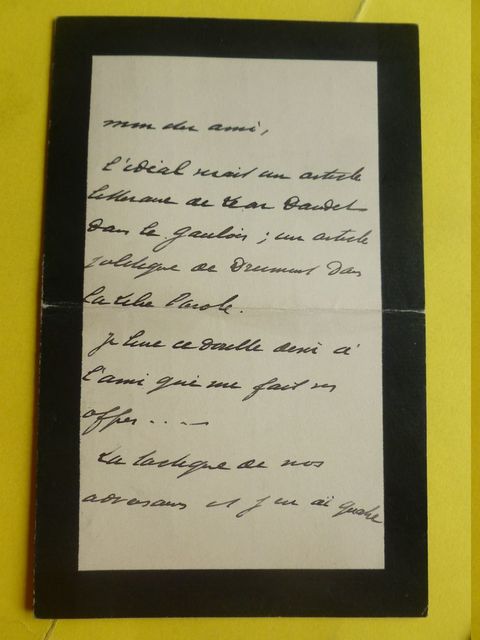 mon cher ami,
L'idéal serait un article
littéraire de Léon Daudet
dans le Gaulois ; un article
politique de Drumont dans
La Libre Parole.
Je livre ce double désir à
l'ami qui me fait ses
offres . . . . —
La tactique de nos
adversaires et j'en ai quatre